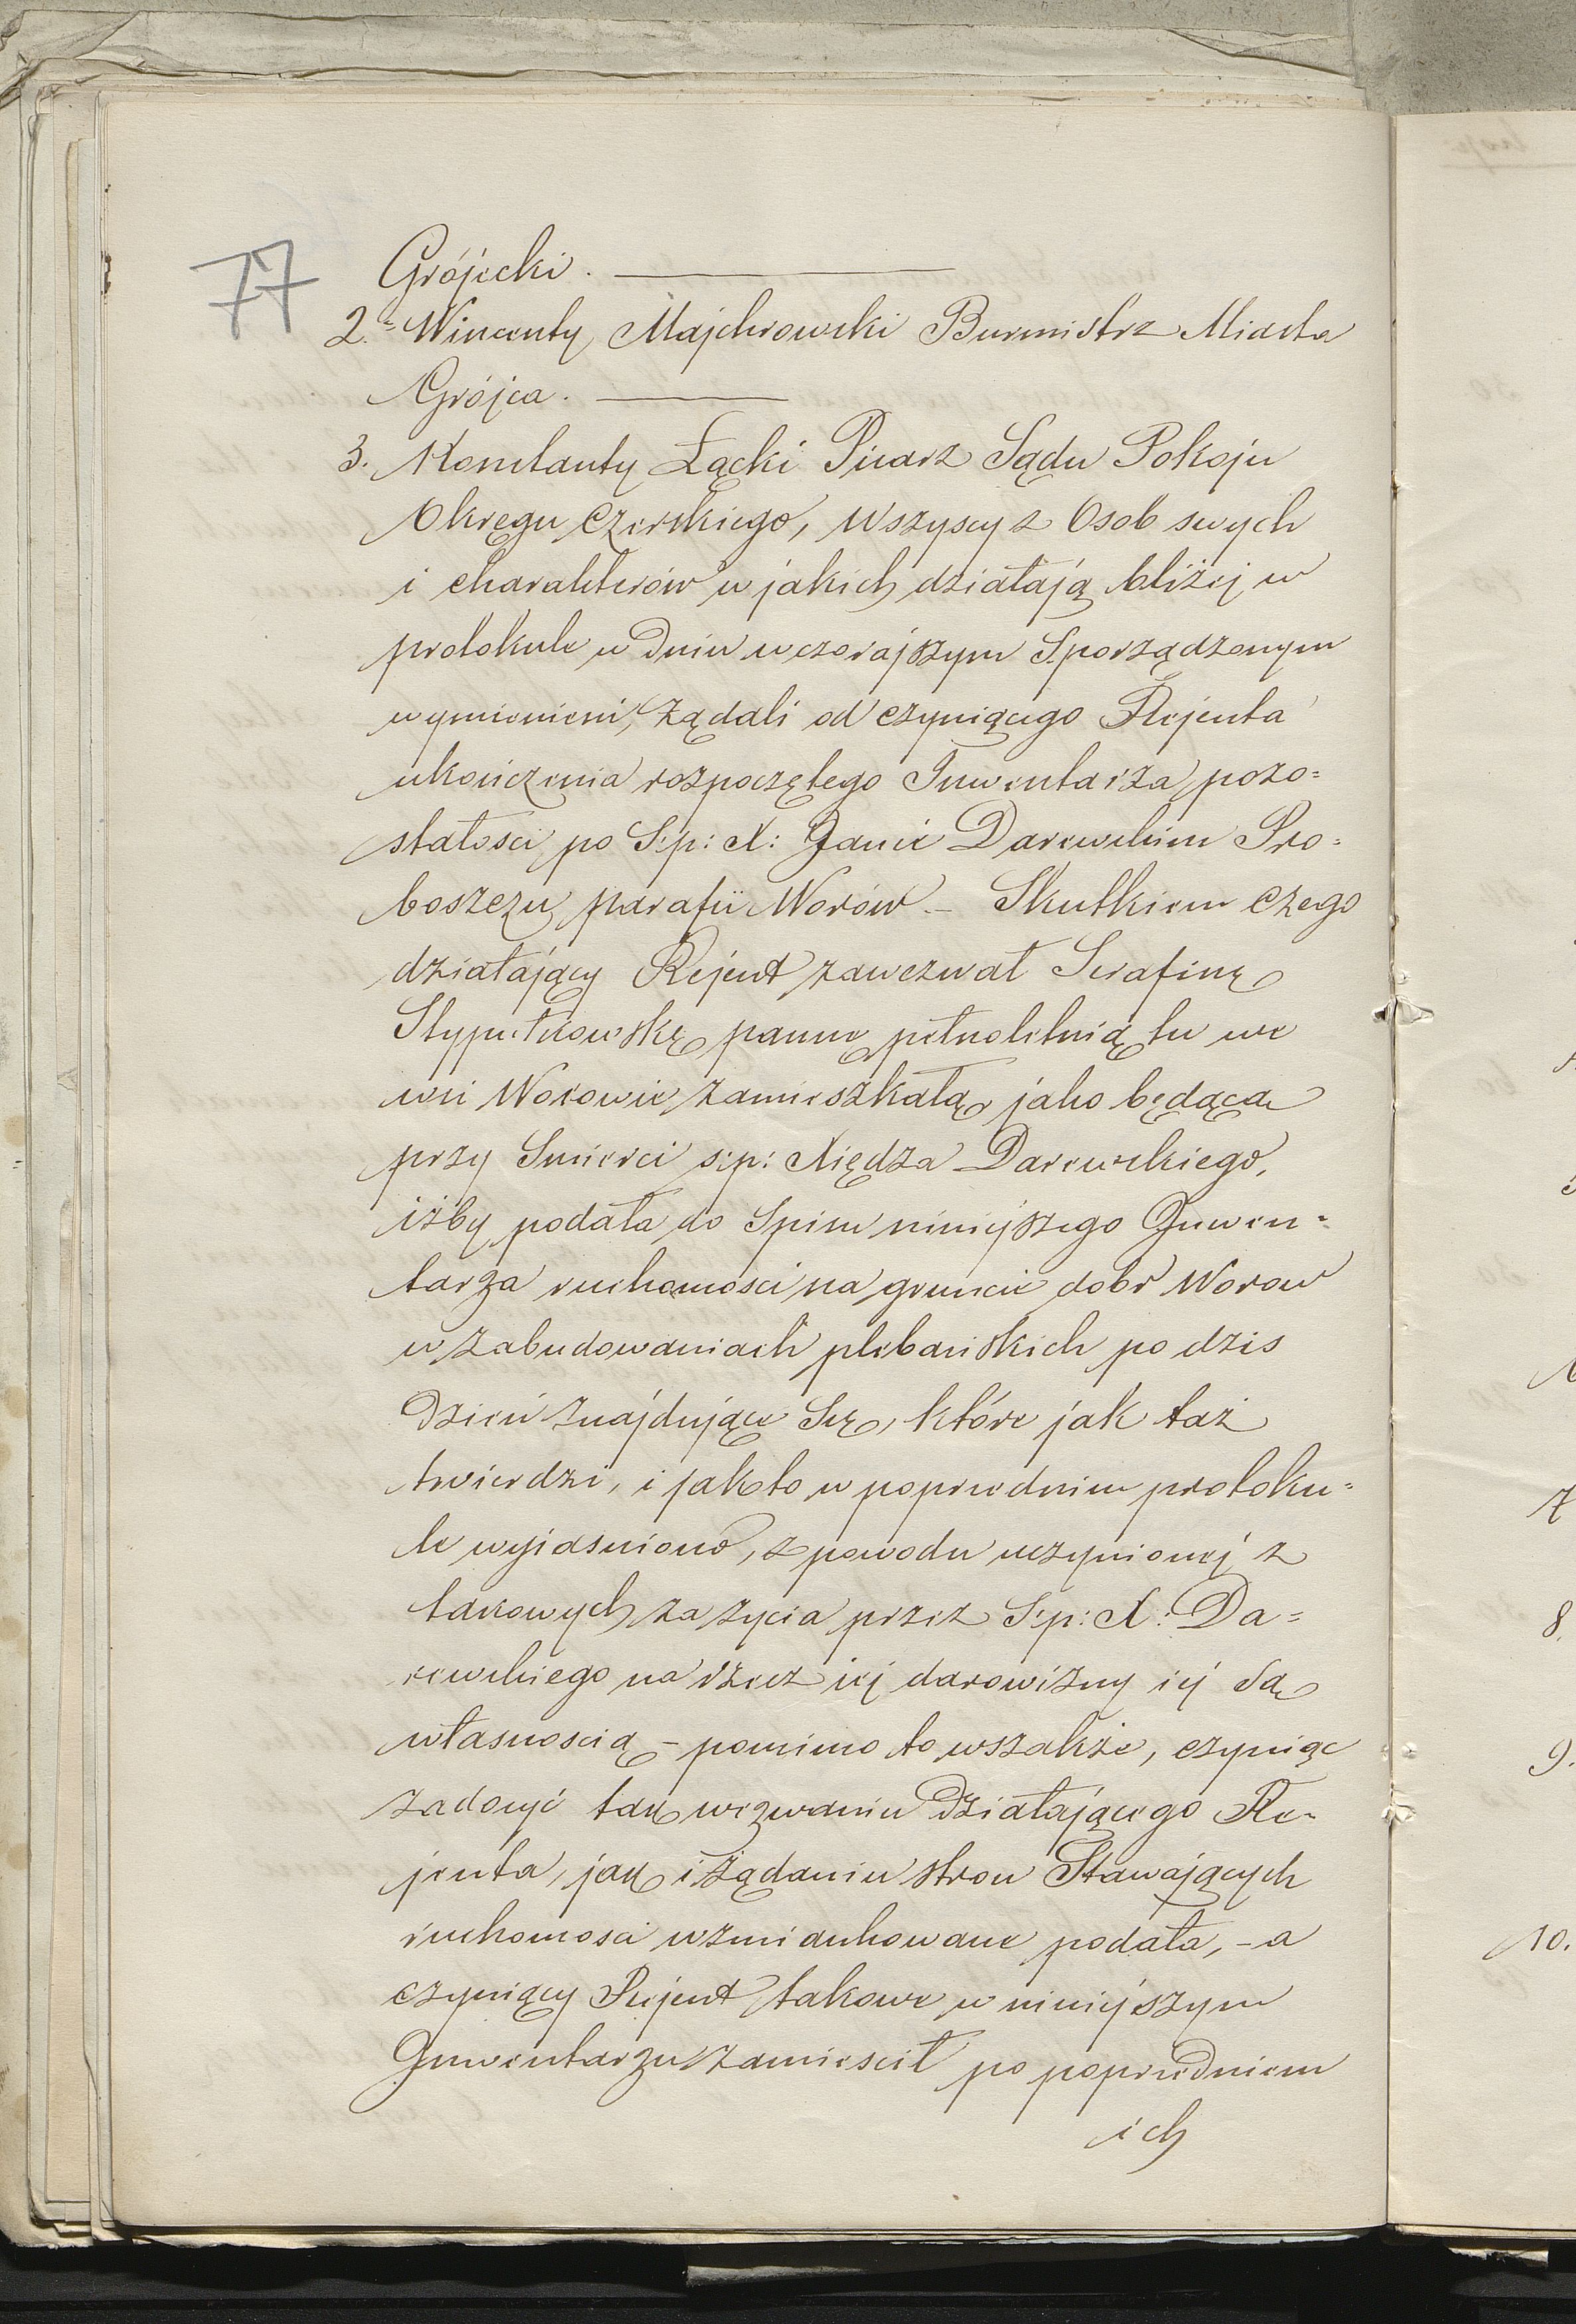 77
Grójecki.
2. Wincenty Majchrowski Burmistrz Miasta
Grójca.
3. Konstanty Łącki Pisarz Sądu Pokoju
Okręgu Czerskiego, Wszyscy z Osob swych
i charakterów w jakich działają bliżej w
protokule w Dniu wczorajszym Sporządzonym
wymienieni, żądali od czyniącego Rejenta
ukończenia rozpoczętego Inwentarza pozo=
stałosci po S:p: X: Janie Darewskim Pro=
boszczu parafii Worów – Skutkiem czego
działający Rejent zawezwał Serafinę
Stypułkowskę pannę pełnoletnią tu we
wsi Worowie zamieszkałą, jako będącą
przy Smierci s:p: Xiędza Darewskiego,
iżby podała do Spisu niniejszego Inwen=
tarza ruchomosci na gruncie dobr Worow
w zabudowaniach plebańskich po dzis
Dzień znajdujące Się, które jak taż
twierdzi, i jak to w poprzednim protoku=
le wyjasniono, z powodu uczynionej z
takowych za życia przez S:p: X: Da=
rewskiego na rzecz jej darowizny jej są
własnoscią – pomimo to wszakże, czyniąc
zadosyć tak wezwaniu Działającego Re=
jenta, jak i żądaniu stron Stawających
ruchomosci wzmiankowane podała, – a
czyniący Rejent takowe w niniejszym
Inwentarzu zamiescił po poprzedniem
ich
8.
9.
10.